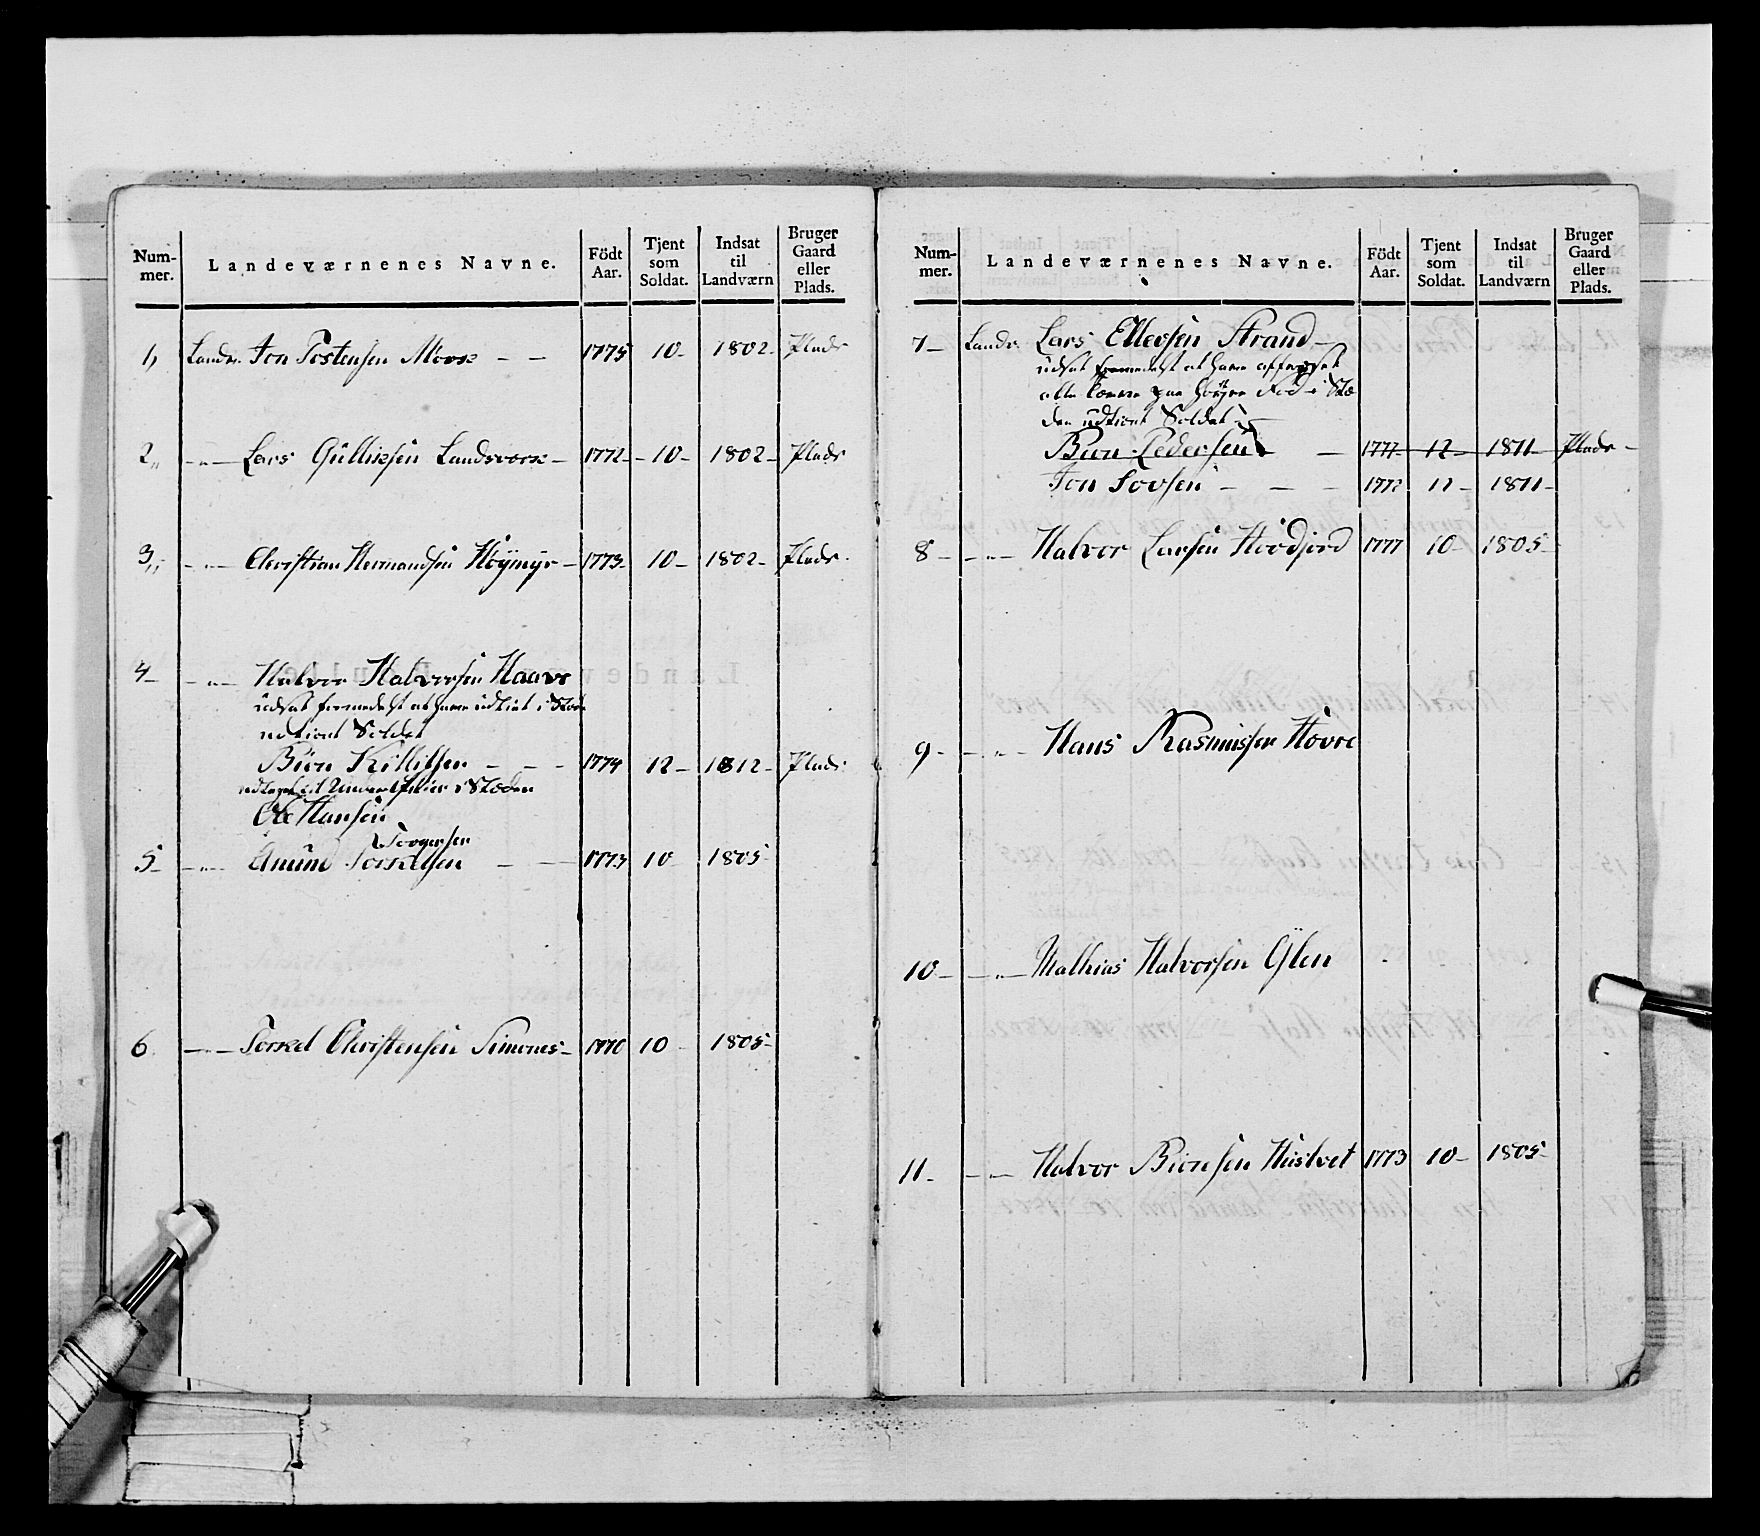 Num-
mer.
Landeværnenes Navne.
Födt
Aar.
Tjent
som
Soldat.
Indsat
til
Landværn
Bruger
Gaard
eller
Plads.
1, Landv. Jon Tostensen Moose - - 1775 10- 1802- Plads
2,, -"- Lars Gullichsen Landsvorx - 1772- 10- 1802- Plads
3,, -"- Christian Hermandsen Höymyr - 1773- 10- 1802- Plads
4- -"- Halvor Halvorsen Haave
udsat formedelst at have udtient i Stæden
udtient Soldat
Biön Killilsen - - - 1774 12- 1812- Plads
i Stæden
Ole Hansen
Torgersen
5- -"- Amund Torkelsen - - 1773 10- 1805-
6 -"- Torkel Christensen Simones- 1770 10 1805-
Num-
mer.
Landeværnenes Navne.
Födt
Aar.
Tjent
som
Soldat.
Indsat
til
Landværn
Bruger
Gaard
eller
Plads.
7- Landv. Lars Ellevsen Strand -
udsat formedelst at have
paa höyre Fod i Stæ
den udtient Soldat
Biön Pedersen - 1777- 12- 1811- Plads -
Jon Sovsen - - - 1772 12- 1811-
8- -"- Halvor Larsen Hovdjord 1777 10- 1805-
9- -"- Hans Rasmussen Hovde
10- -"- Mathias Halvorsen Ÿlen
11- - - Halvor Biönsen Huslvet 1773 10- 1805-